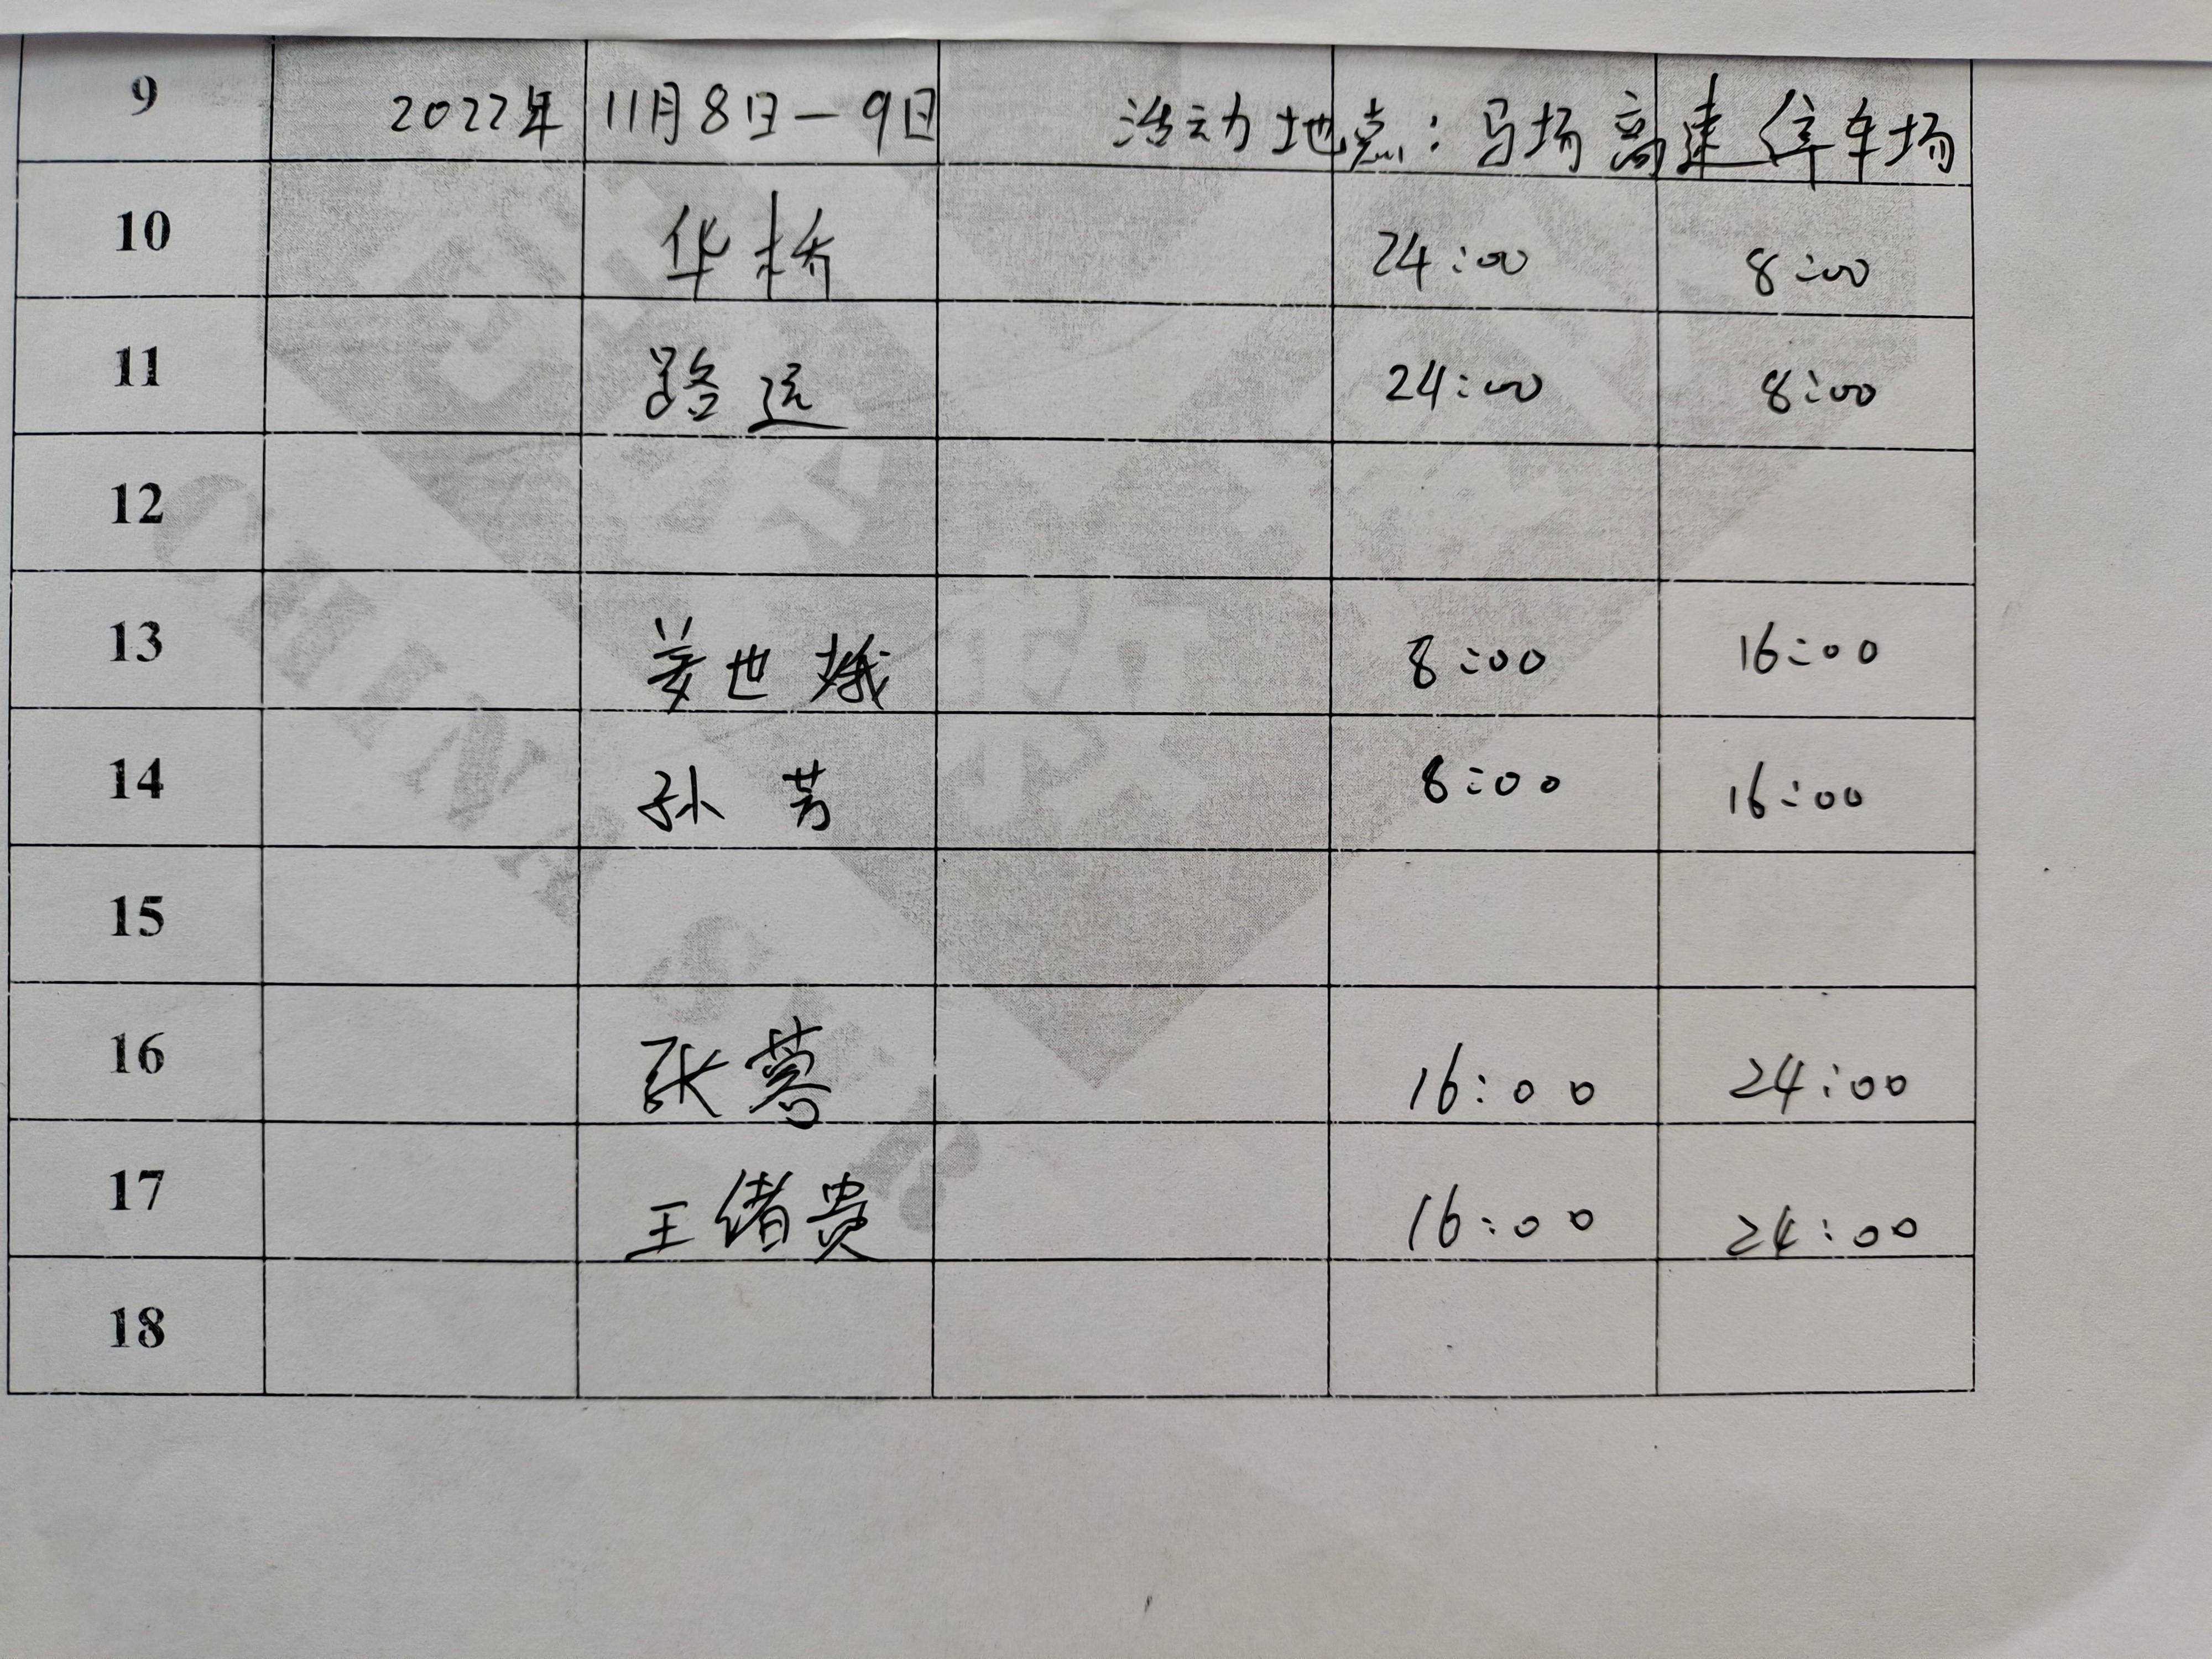 9 2022年 11月8日—9日 活动地点：马场高速停车场
10 华桥 24:00 8:00
11 路遥 24:00 8:00
12
13 姜世娥 8:00 16:00
14 孙芳 8:00 16:00
15
16 张蓉 16:00 24:00
17 王绪贵 16:00 24:00
18
CHINA STAR